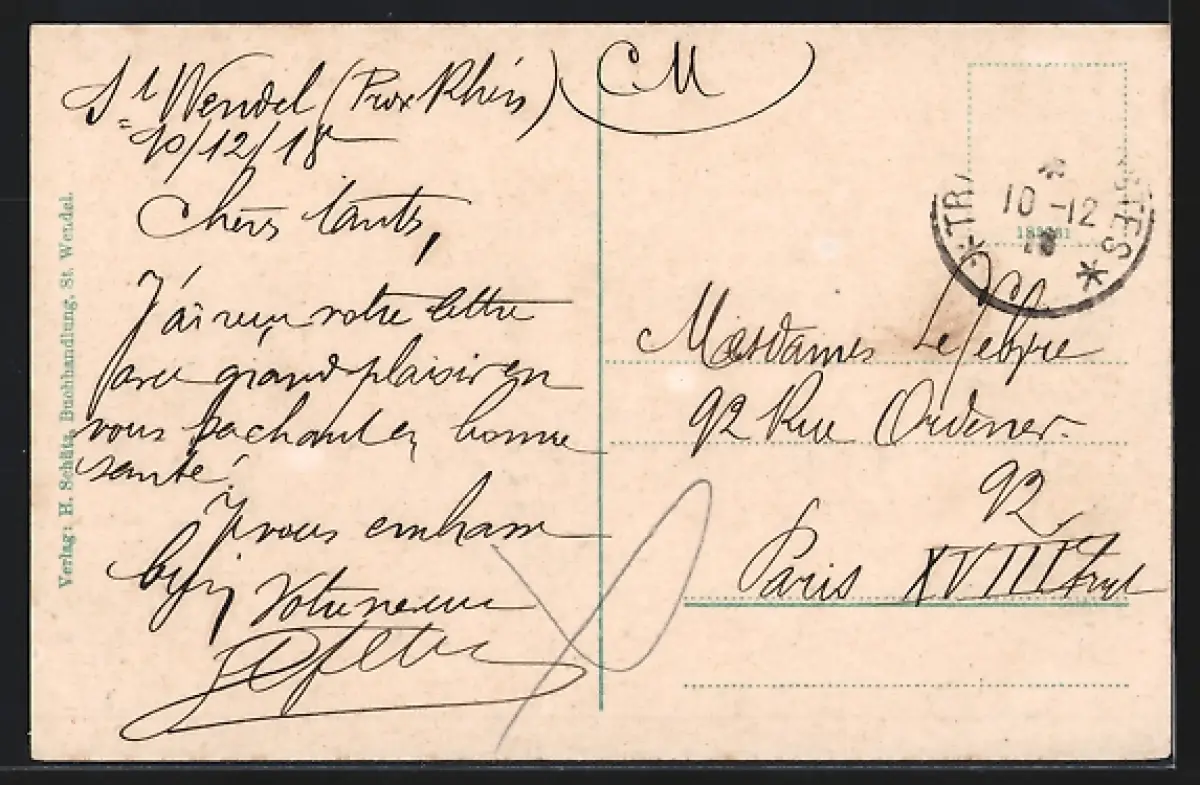 St Wendel (Prov Rhin)
10/12/18
Chers tants,
J'ai reçu votre lettre
avec grand plaisir en
vous sachant en bonne
santé.
Je vous embrasse
Votre neveu
CM
TR
10 -12
18
TES
Mesdames Lefebvre
92 Rue Ordener.
92
Paris XVIII
Verlag: H. Schütz, Buchhandlung, St. Wendel.